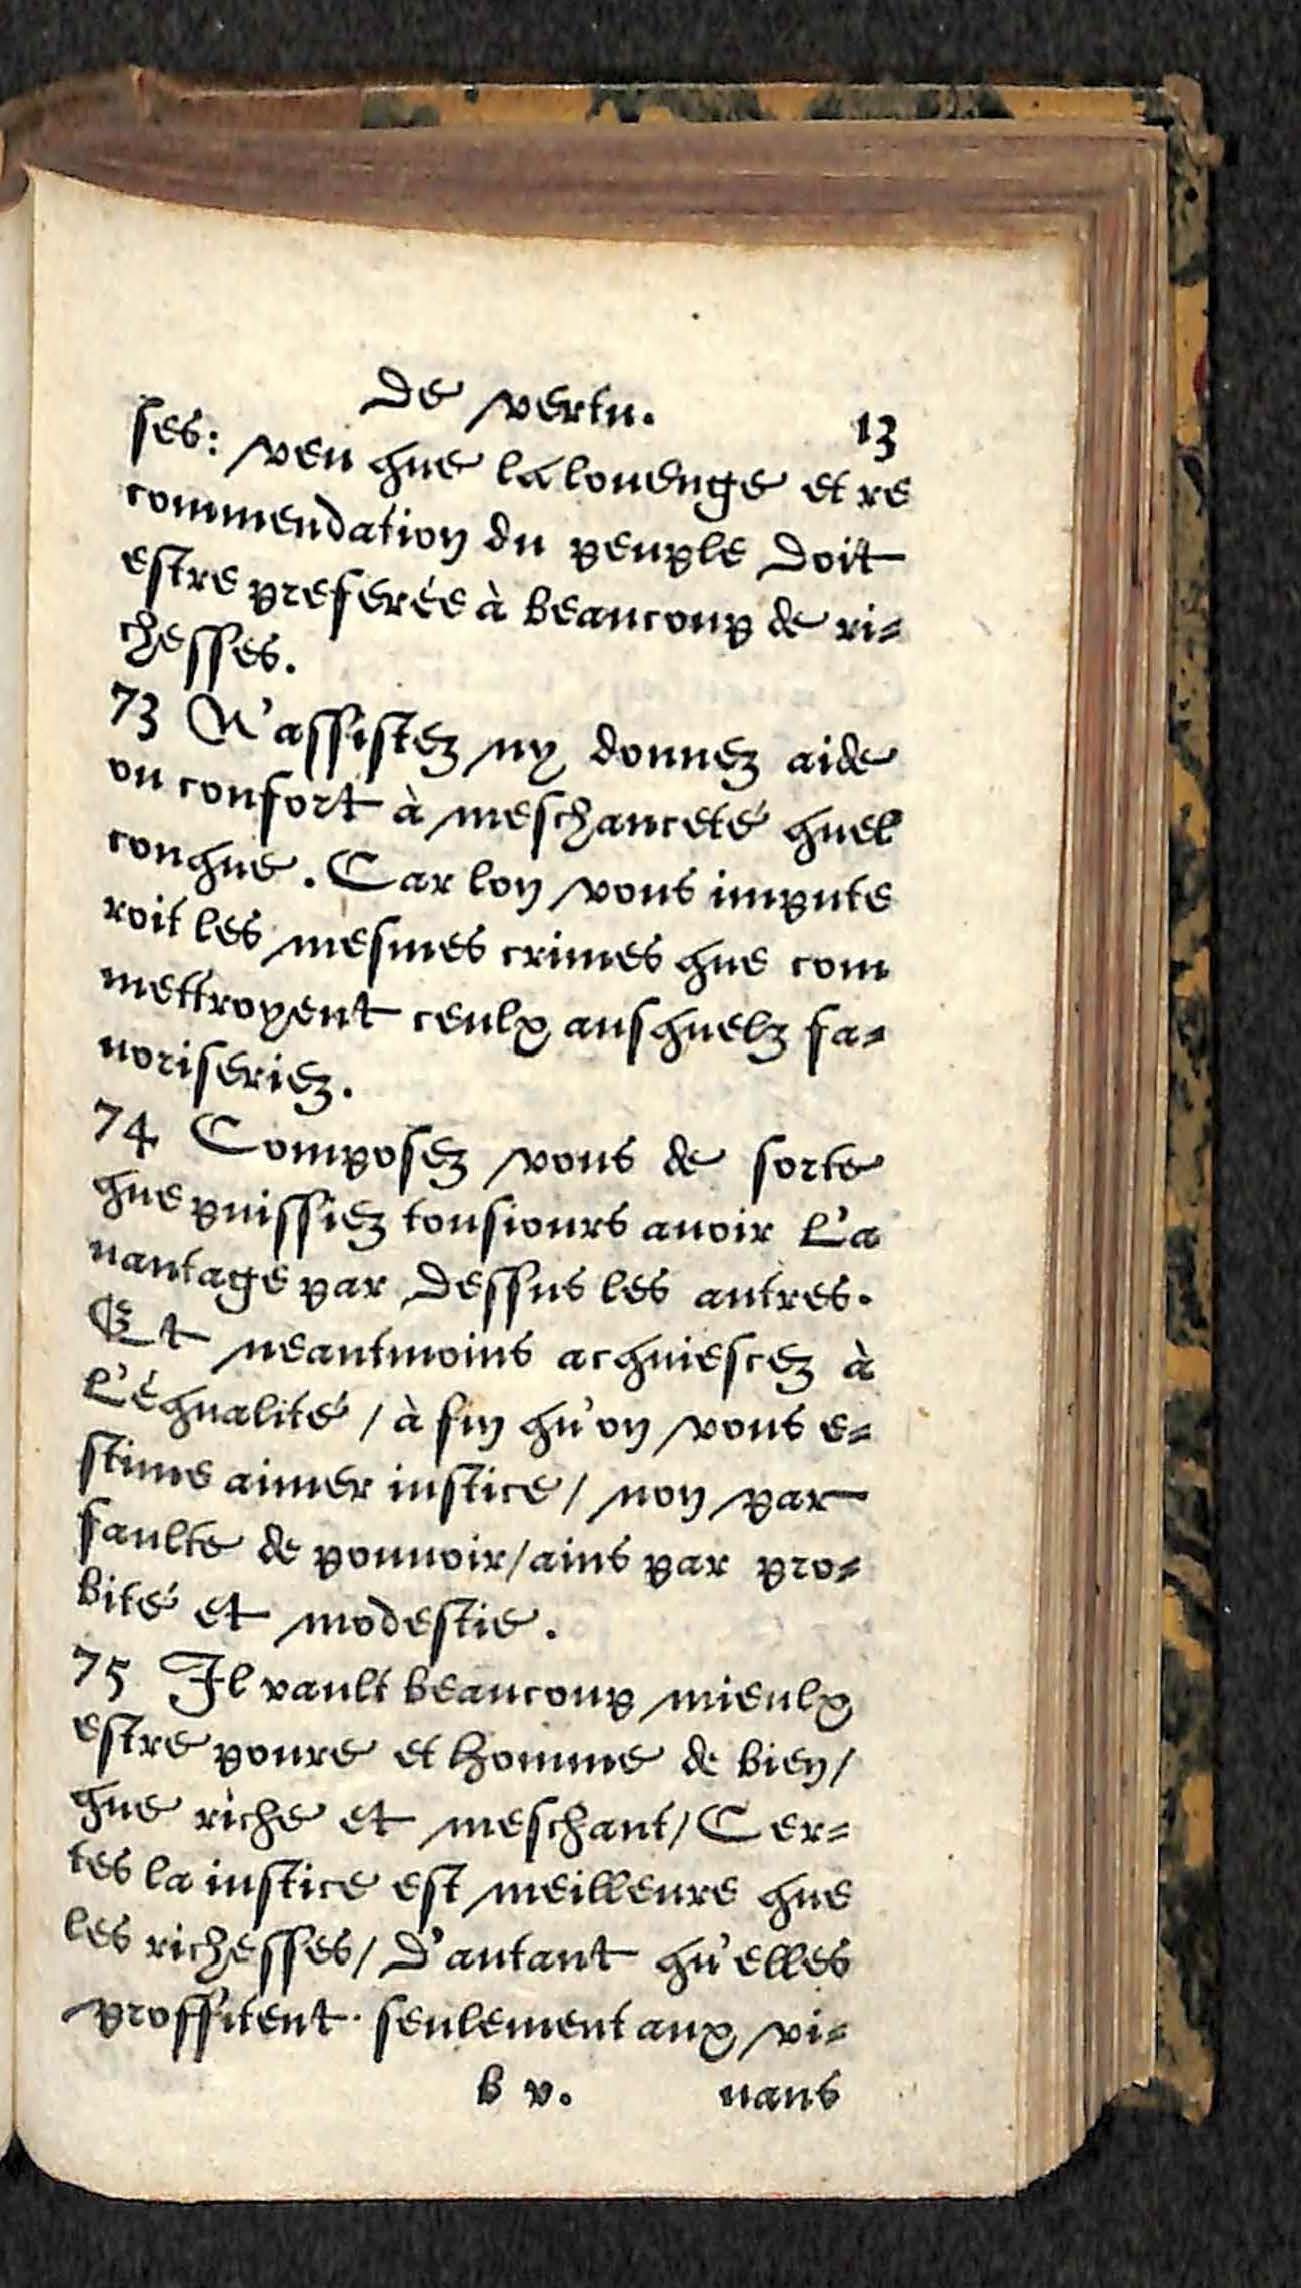 De vertu. 13
ses: veu que la louenge et re
commendation du peuple doit
estre preferée à beaucoup de ri-
chesses.
73 N'assistez ny donnez aide
ou confort à meschanceté quel
conque. Car lon vous impute
roit les mesmes crimes que com
mettroyent ceulx ausquelz fa-
uoriseriez.
74 Composez vous de sorte
que puissiez tousiours auoir l'a
uantage par dessus les autres.
Et neantmoins acquiescez à
l'équalité / à fin qu'on vous e-
stime aimer iustice / non par
faulte de pouuoir / ains par pro-
bité et modestie.
75 Il vault beaucoup mieulx
estre poure et homme de bien /
que riche et meschant / Cer-
tes la iustice est meilleure que
les richesses / d'autant qu'elles
proffitent seulement aux vi-
b v. uans